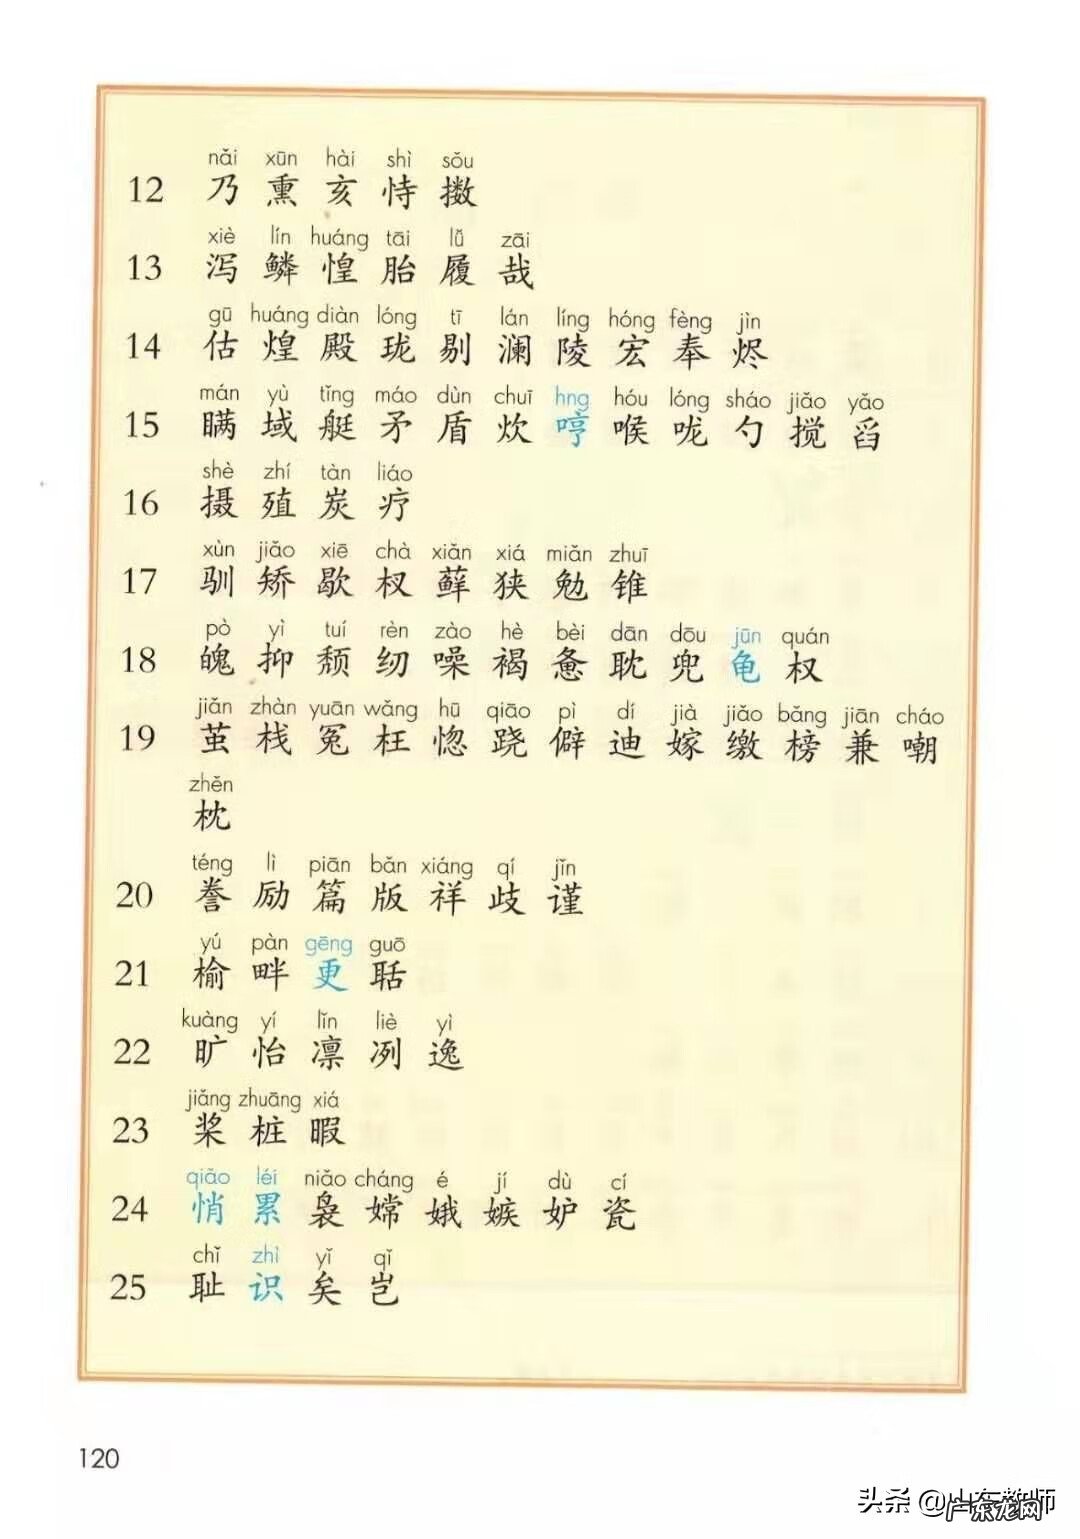 nǎi xūn hài shì sǒu
12 乃 熏 亥 恃 擞
xiè lín huáng tāi lǚ zāi
13 泻 鳞 惶 胎 履 哉
gū huáng diàn lóng tī lán líng hóng fèng jìn
14 估 煌 殿 珑 剔 澜 陵 宏 奉 烬
mán yù tǐng máo dùn chuī hng hóu lóng sháo jiǎo yǎo
15 瞒 域 艇 矛 盾 炊 哼 喉 咙 勺 搅 舀
shè zhí tàn liáo
16 摄 殖 炭 疗
xùn jiǎo xiē chà xiǎn xiá miǎn zhuī
17 驯 矫 歇 杈 藓 狭 勉 锥
pò yì tuí rèn zào hè bèi dān dōu jūn quán
18 魄 抑 颓 纫 噪 褐 惫 耽 兜 龟 权
jiǎn zhàn yuān wǎng hū qiāo pì dí jià jiǎo bǎng jiān cháo
19 茧 栈 冤 枉 惚 跷 僻 迪 嫁 缴 榜 兼 嘲
zhěn
枕
téng lì piān bǎn xiáng qí jǐn
20 誊 励 篇 版 祥 歧 谨
yú pàn gēng guō
21 榆 畔 更 聒
kuàng yí lǐn liè yì
22 旷 怡 凛 冽 逸
jiǎng zhuāng xiá
23 桨 桩 暇
qiǎo léi niǎo cháng é jí dù cí
24 悄 累 袅 嫦 娥 嫉 妒 瓷
chǐ zhì yǐ qǐ
25 耻 识 矣 岂
120
头条 @山东教师
广东龙网